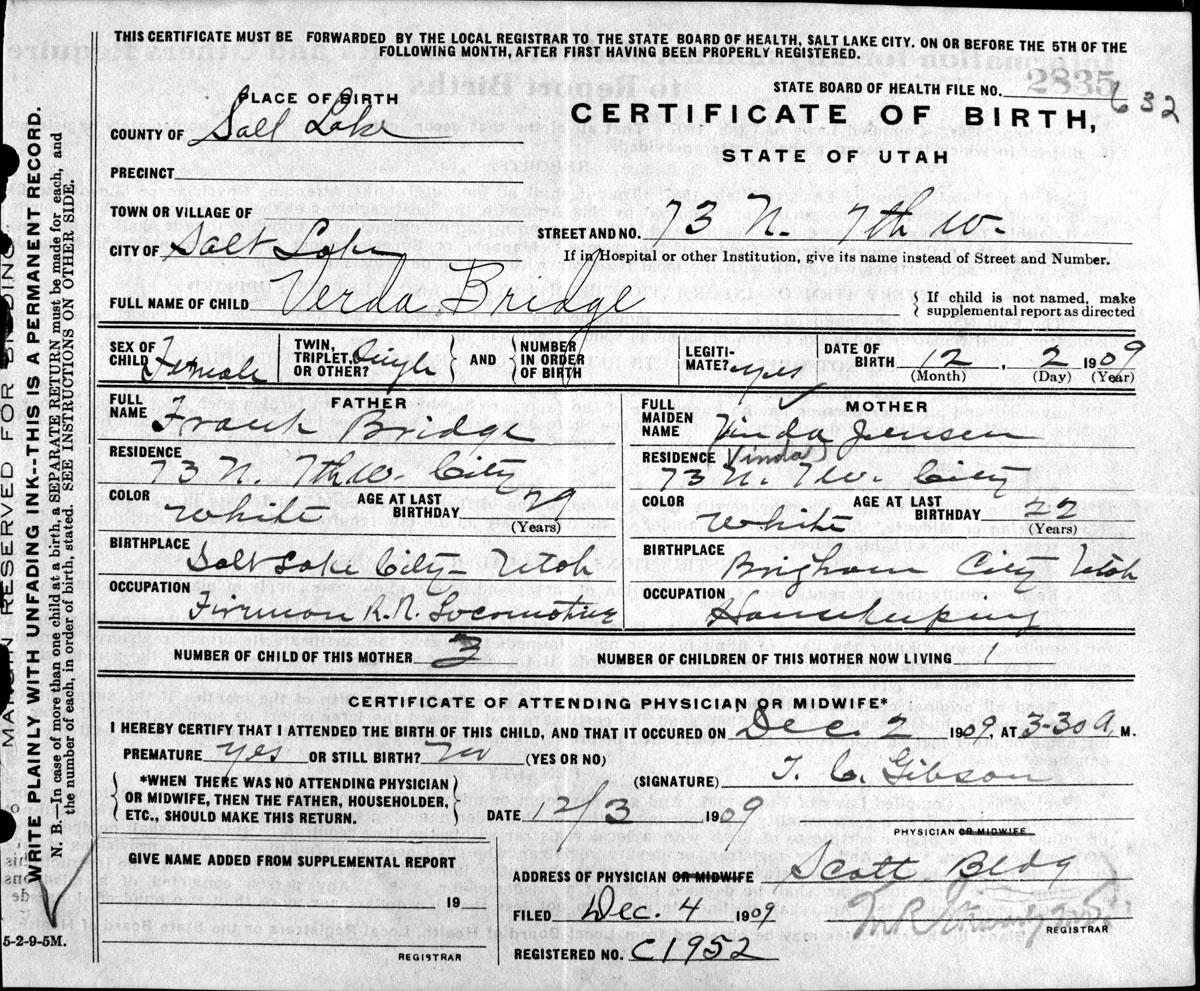 THIS CERTIFICATE MUST BE FORWARDED BY THE LOCAL REGISTRAR TO THE STATE BOARD OF HEALTH, SALT LAKE CITY. ON OR BEFORE THE 5TH OF THE
FOLLOWING MONTH, AFTER FIRST HAVING BEEN PROPERLY REGISTERED.
STATE BOARD OF HEALTH FILE NO. 2835 632
PLACE OF BIRTH
CERTIFICATE OF BIRTH,
COUNTY OF Salt Lake
STATE OF UTAH
PRECINCT
TOWN OR VILLAGE OF
STREET AND NO. 73 N. 7th W.
CITY OF Salt Lake
If in Hospital or other Institution, give its name instead of Street and Number.
FULL NAME OF CHILD Verda Bridge
{ If child is not named, make
supplemental report as directed
SEX OF CHILD Female
TWIN, TRIPLET, OR OTHER? Single
AND
NUMBER IN ORDER OF BIRTH
LEGITIMATE? yes
DATE OF BIRTH 12, 2 1909
(Month) (Day) (Year)
FATHER
FULL NAME Frank Bridge
RESIDENCE 73 N. 7th W. City
COLOR White
AGE AT LAST BIRTHDAY 29
(Years)
BIRTHPLACE Salt Lake City - Utah
OCCUPATION Fireman R.R. Locomotive
MOTHER
FULL MAIDEN NAME Vinda Jensen
(Vinda)
RESIDENCE 73 N. 7 W. City
COLOR White
AGE AT LAST BIRTHDAY 22
(Years)
BIRTHPLACE Brigham City - Utah
OCCUPATION Housekeeping
NUMBER OF CHILD OF THIS MOTHER 3
NUMBER OF CHILDREN OF THIS MOTHER NOW LIVING 1
CERTIFICATE OF ATTENDING PHYSICIAN OR MIDWIFE*
I HEREBY CERTIFY THAT I ATTENDED THE BIRTH OF THIS CHILD, AND THAT IT OCCURED ON Dec. 2 1909, AT 3-30 a, M.
PREMATURE yes OR STILL BIRTH? no (YES OR NO)
*WHEN THERE WAS NO ATTENDING PHYSICIAN
OR MIDWIFE, THEN THE FATHER, HOUSEHOLDER,
ETC., SHOULD MAKE THIS RETURN.
(SIGNATURE) T. C. Gibson
DATE 12/3 1909
PHYSICIAN OR MIDWIFE
GIVE NAME ADDED FROM SUPPLEMENTAL REPORT
19
REGISTRAR
ADDRESS OF PHYSICIAN OR MIDWIFE Scott Bldg
FILED Dec. 4 1909
REGISTRAR
REGISTERED NO. C1952
5-2-9-5M.
MARGIN RESERVED FOR BINDING
WRITE PLAINLY WITH UNFADING INK--THIS IS A PERMANENT RECORD.
N. B.—In case of more than one child at a birth, a SEPARATE RETURN must be made for each, and
the number of each, in order of birth, stated. SEE INSTRUCTIONS ON OTHER SIDE.